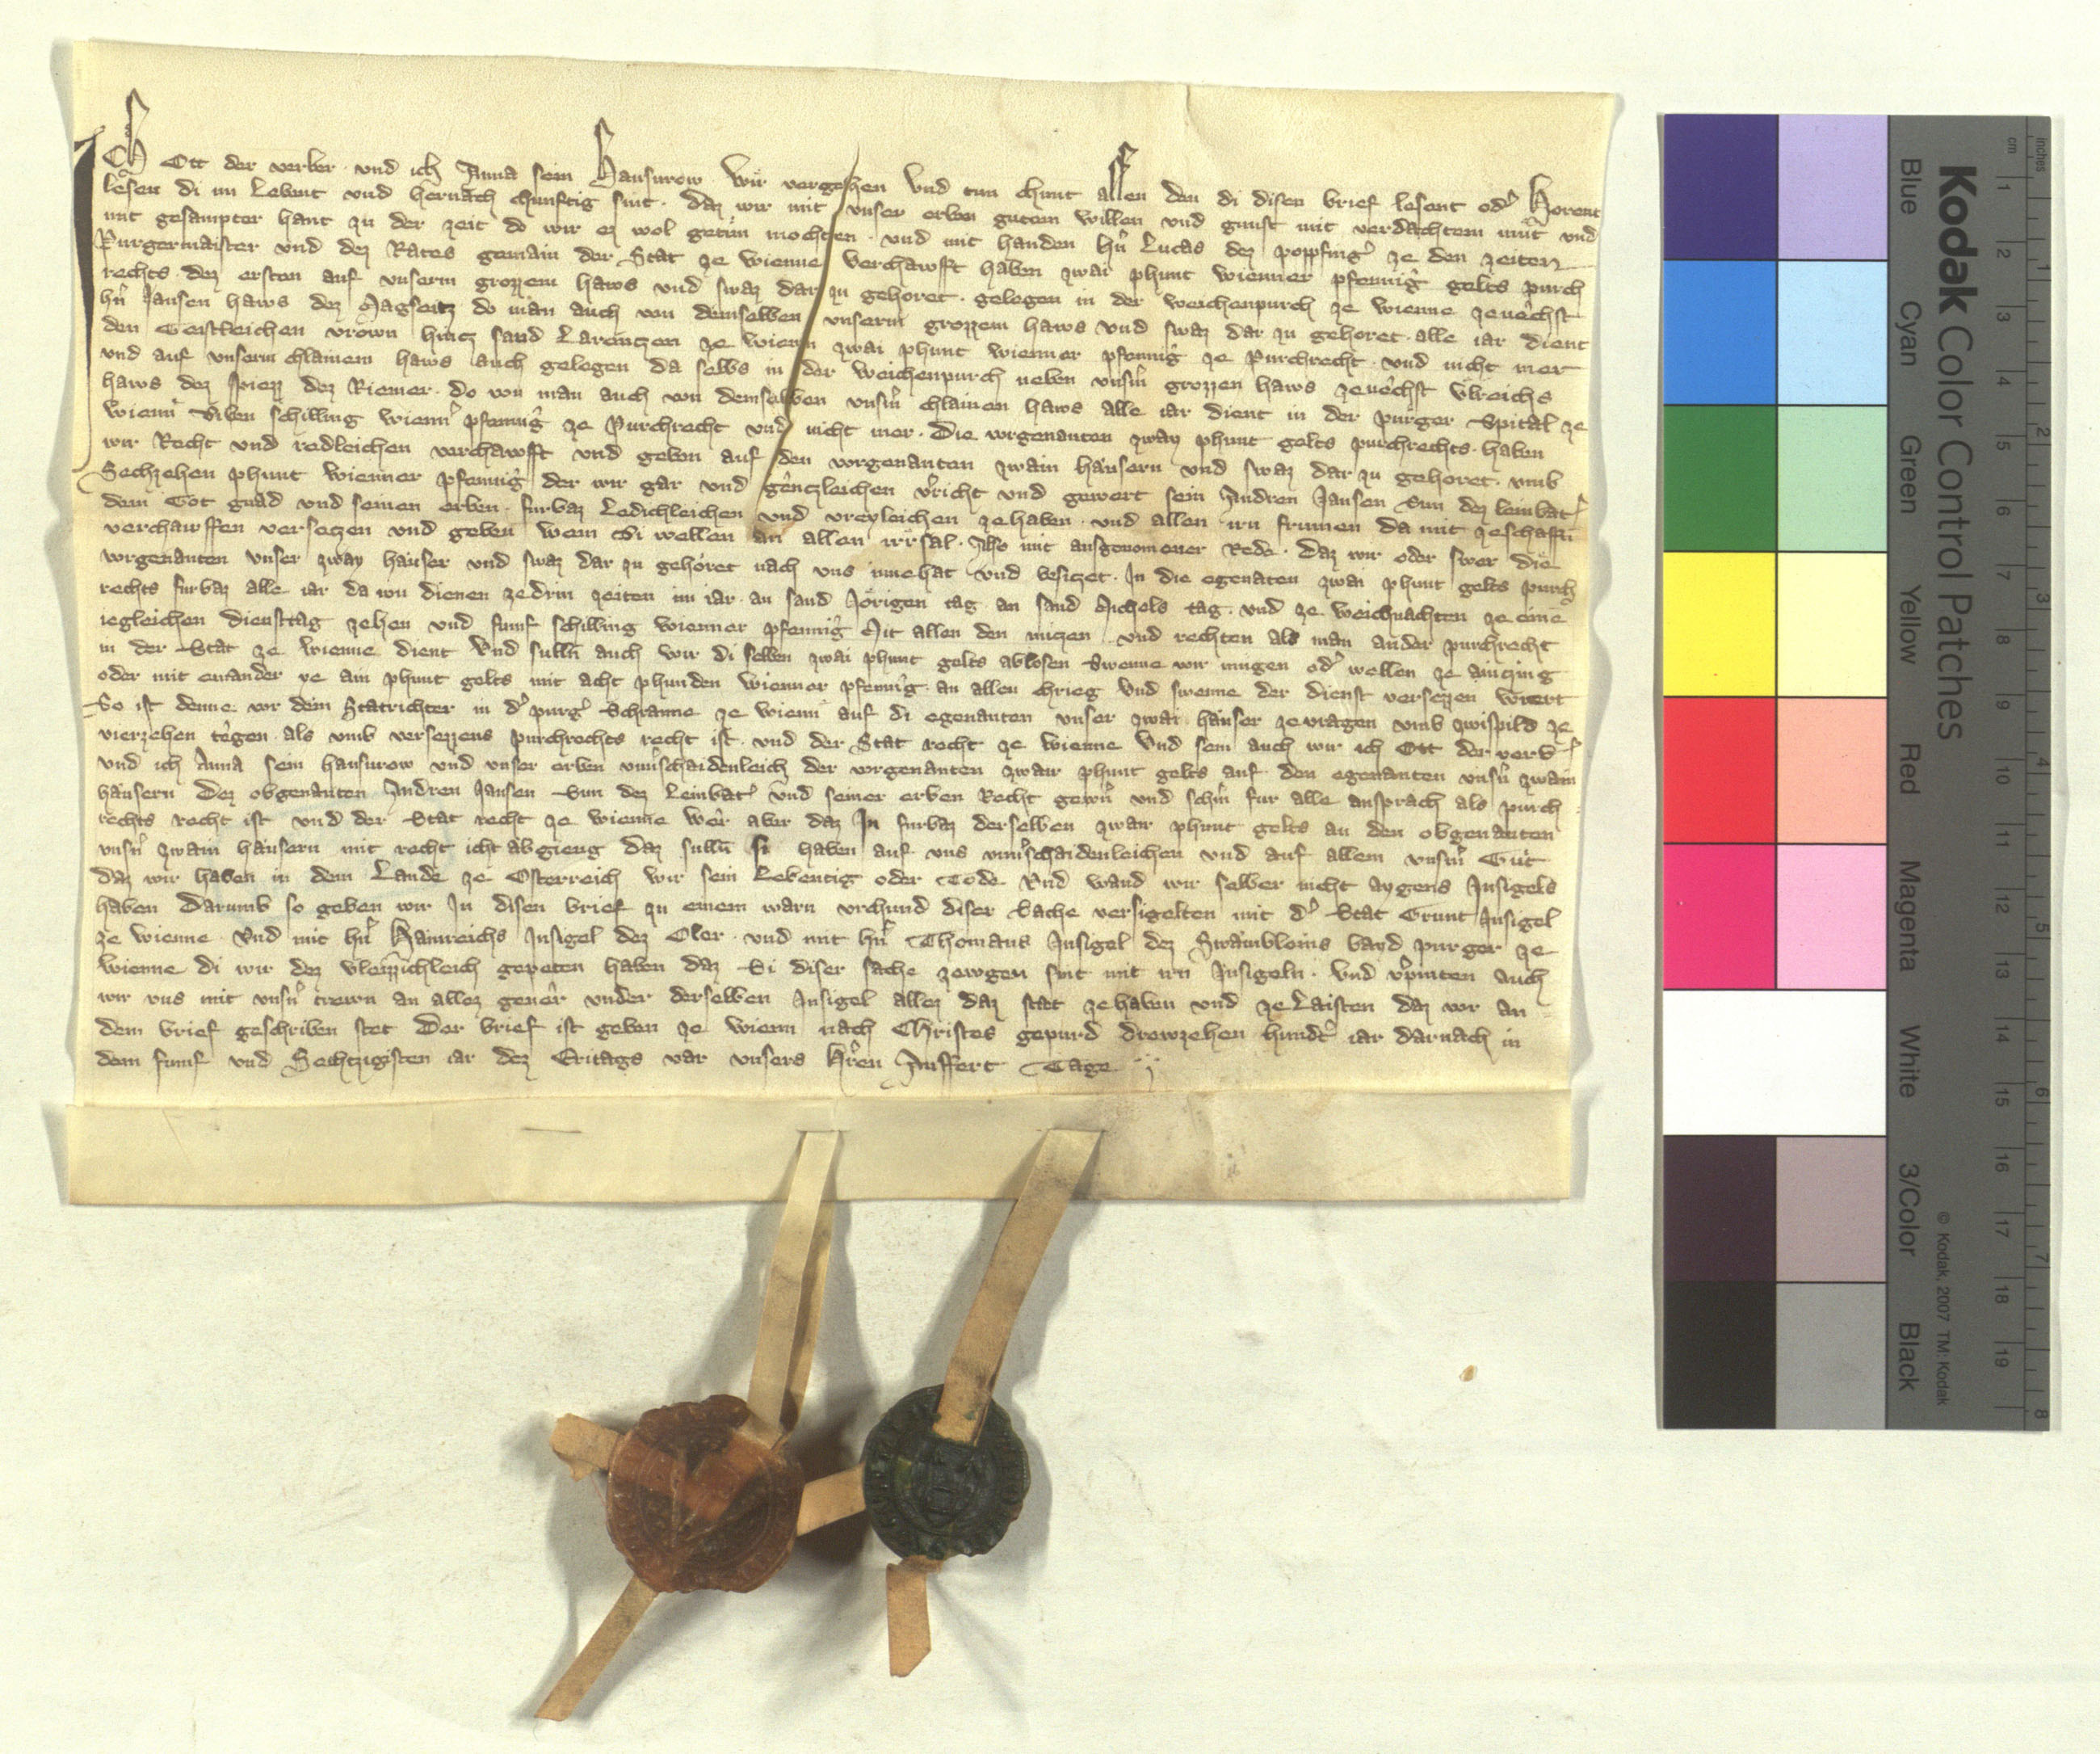 Ich Ott der verber · vnd ich Anna sein Hausvrow Wir vergehen Vnd tun chunt allen den di disen brief lesent od' Horent
lesen di nu Lebent vnd hernach chunftig sint · daz wir mit vnser erben gutem willen vnd gunst mit verdachtem mut vnd
mit gesampter hant zu der zeit do wir ez wol getun mochten · vnd mit handen hn̄ Lucas dez popphing' ze den zeiten
Purgermaister vnd dez Rates gemain der Stat ze wienne Verchawfft haben zwai phunt wienner pfennig gelts purch
rechts · dez ersten auf vnserm grozzem haws vnd swaz dar zu gehoret · gelegen in der weichenpurch ze wienne zenechst
hn̄ Jansen haws dez Magseitz do man auch von demselben vnserm grozzem haws vnd swaz dar zu gehoret · alle iar dient
den Geistleichen vrown hincz sand Larenczen ze wienn zwai phunt wienner pfennig ze Purchrecht · vnd nicht mer
vnd auf vnserm chlainem haws auch gelegen da selbs in der Weichenpurch neben vnsm̄ grozzen haws zenechst Vlreichs
haws dez spiezz dez Riemer · do von man auch von demselben vnsm̄ chlainen haws alle iar dient in der purger Spital ze
wienn Siben schilling wienn' pfennig ze Purchrecht vnd nicht mer · Die vorgenanten zway phunt gelts purchrechts · haben
wir Recht vnd redleichen verchawfft vnd geben auf den vorgenanten zwain hausern vnd swaz dar zu gehoret · vmb
Sechzehen phunt wienner pfennig der wir gar vnd genczleichen v'richt vnd gewert sein Andren Jansen Sun dez leinbat'
dem Got gnad vnd seinen erben · furbaz Ledichleichen vnd vreyleichen zehaben · vnd allen irn frumen da mit zeschaffn̄
verchawffen versetzen vnd geben wem Si wellen an allen irrsal · Also mit ausgenomener Rede · daz wir oder swer die
vorgenanten vnser zway hauser vnd swaz dar zu gehoret nach vns innehat vnd besiczet · In die egenaten zwai phunt gelts purch
rechts furbaz alle iar da von dienen zedrin zeiten im iar · an sand Jorigen tag · an sand Michels tag · vnd ze weichnachten ze eine
iegleichen diensttag zehen vnd fumf schilling wienner pfennig Mit allen den nuczen · vnd rechten als man ander purchrecht
in der Stat ze wienne dient Vnd sulln̄ auch wir di selben zwai phunt gelts ablosen Swenne wir mugen od' wellen ze ainczing
oder mit einander ye ain phunt gelts mit acht phunden wienner pfennig · an allen chrieg Vnd swenne der dienst versezzen wiert
So ist denne vor dem Statrichter in d' purg' Schranne ze wienn auf di egenanten vnser zwai hauser ze vragen vmb zwispild ze
vierzehen tegen · als vmb versezzens purchrechts recht ist · vnd der Stat recht ze wienne Vnd sein auch wir ich Ott der verb'
vnd ich Anna sein hausvrow vnd vnser erben vnu'schaidenleich der vorgenanten zwair phunt gelts auf den egenanten vnsn̄ zwain
hausern dez obgenanten Andren Jansen Sun dez Leinbat' vnd seiner erben Recht gewn̄ vnd scherm fur alle ansprach als purch
rechts recht ist vnd der Stat recht ze wienne wer aber daz In furbaz derselben zwair phunt gelts an den obgenanten
vnsn̄ zwain hausern mit recht icht abgieng daz sulln̄ si haben auf vns vnu'schaidenleichen vnd auf allem vnsm̄ Gut
daz wir haben in dem Lande ze Osterreich wir sein Lebentig oder Tode Vnd wand wir selber nicht aygens Insigels
haben Darumb so geben wir In disen brief zu einem warn vrchund diser Sache versigelten mit d' Stat Grunt Insigel
ze wienne · Vnd mit hn̄ Hainreichs Insigel dez Oler · vnd mit hn̄ Thomans Insigel dez Swambleins bayd purger ze
wienne di wir dez vleizzichleich gepeten haben daz Si diser sache zewgen sint mit irn Insigeln · Vnd v'pinten auch
wir vns mit vnsn̄ trewn an allez gever vnder derselben Insigel allez daz stat zehaben vnd ze Laisten daz vor an
dem brief geschriben stet Der brief ist geben ze wienn nach Christes gepurd drewzehen hundt' iar darnach in
dem fumf vnd Sechtzigisten iar dez Eritags var vnsers Hr̄en Auffert Tage
Kodak Color Control Patches
Blue Cyan Green Yellow Red Magenta White 3/Color Black
© Kodak, 2007 TM: Kodak
cm 1 2 3 4 5 6 7 8 9 10 11 12 13 14 15 16 17 18 19
inches 1 2 3 4 5 6 7 8